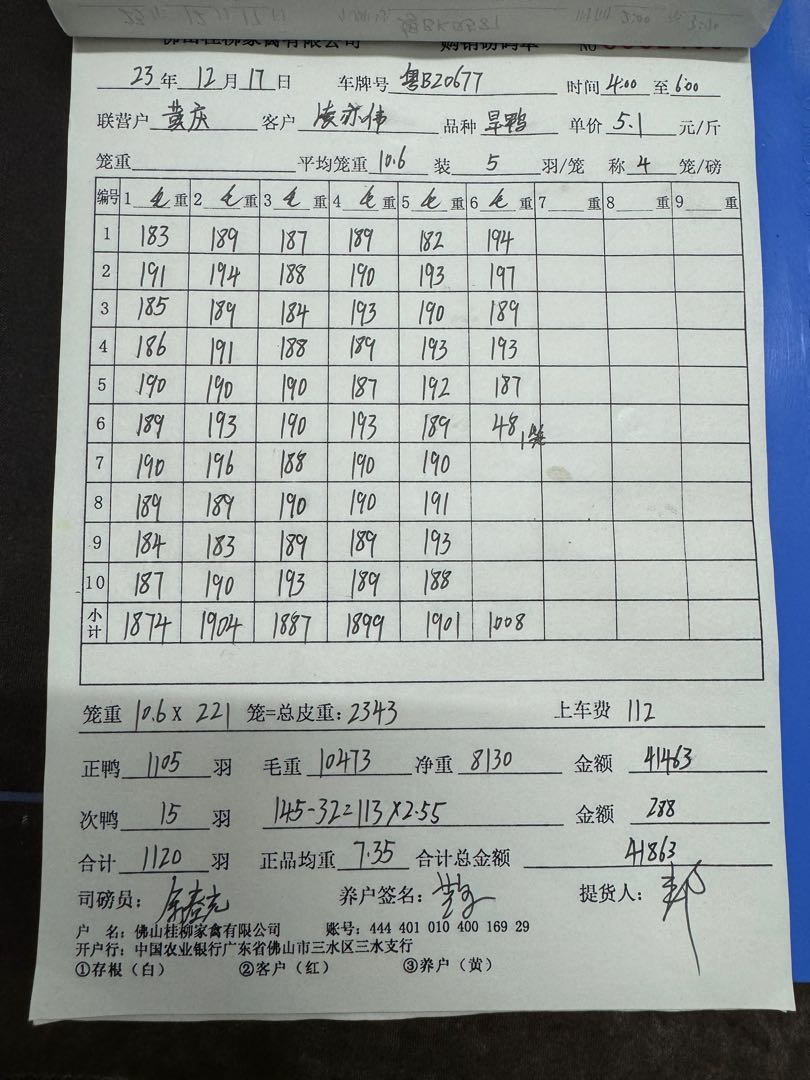 佛山桂柳家禽有限公司 购销磅码单 No
23年 12月 17日 车牌号 粤B20677 时间 4:00 至 6:00
联营户 黄庆 客户 凌亦伟 品种 旱鸭 单价 5.1 元/斤
笼重 平均笼重 10.6 装 5 羽/笼 称 4 笼/磅
编号 1 毛 重 2 毛 重 3 毛 重 4 毛 重 5 毛 重 6 毛 重 7 重 8 重 9 重
1 183 189 187 189 182 194
2 191 194 188 190 193 197
3 185 189 184 193 190 189
4 186 191 188 189 193 193
5 190 190 190 187 192 187
6 189 193 190 193 189 48 1笼
7 190 196 188 190 190
8 189 189 190 190 191
9 184 183 189 189 193
10 187 190 193 189 188
小计 1874 1904 1887 1899 1901 1008
笼重 10.6 X 221 笼=总皮重: 2343 上车费 112
正鸭 1105 羽 毛重 10473 净重 8130 金额 41463
次鸭 15 羽 145-32=113X2.55 金额 288
合计 1120 羽 正品均重 7.35 合计总金额 41863
司磅员: 养户签名: 提货人:
户 名: 佛山桂柳家禽有限公司 账号: 444 401 010 400 169 29
开户行: 中国农业银行广东省佛山市三水区三水支行
①存根(白) ②客户(红) ③养户(黄)